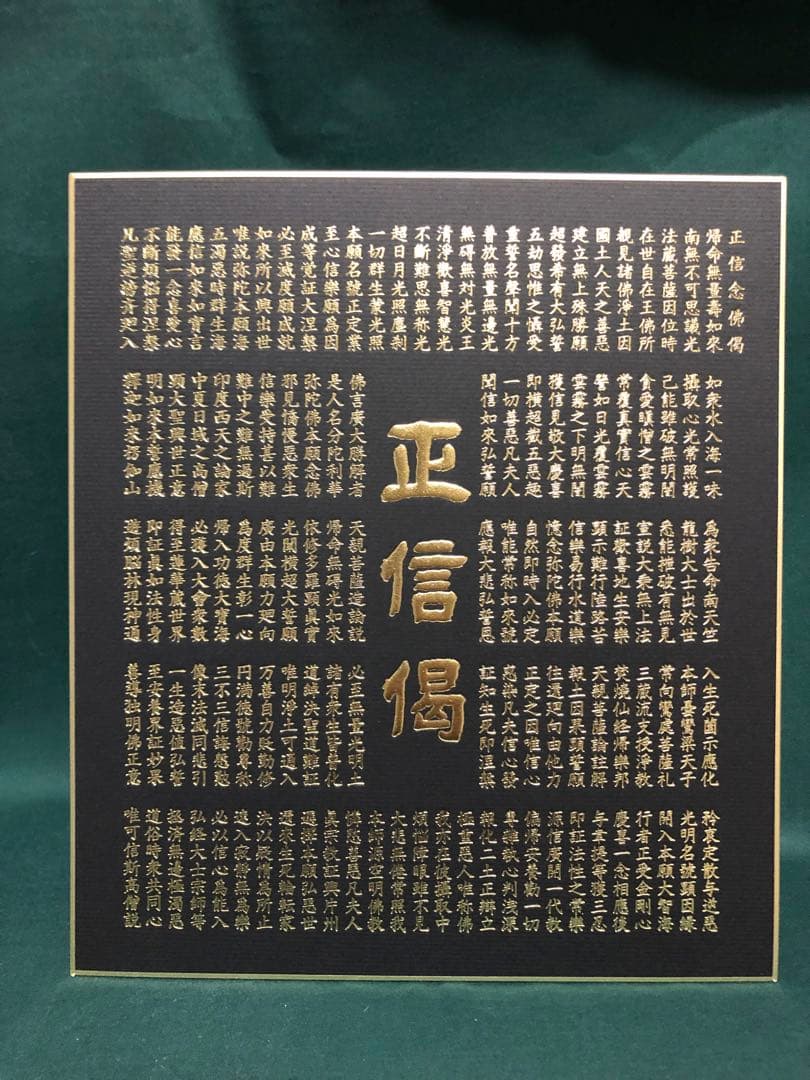 正信念佛偈
帰命無量壽如來
南無不可思議光
法蔵菩薩因位時
在世自在王佛所
覩見諸佛淨土因
國土人天之善惡
建立無上殊勝願
超發希有大弘誓
五劫思惟之攝受
重誓名聲聞十方
普放無量無邊光
無碍無対光炎王
清淨歡喜智慧光
不斷難思無称光
超日月光照塵刹
一切群生蒙光照
本願名號正定業
至心信樂願為因
成等覚証大涅槃
必至滅度願成就
如來所以興出世
唯説弥陀本願海
五濁惡時群生海
應信如來如實言
能發一念喜愛心
不斷煩惱得涅槃
凡聖逆謗斉廻入
如衆水入海一味
攝取心光常照護
已能雖破無明闇
貪愛瞋憎之雲霧
常覆真實信心天
譬如日光覆雲霧
雲霧之下明無闇
獲信見敬大慶喜
即横超截五惡趣
一切善惡凡夫人
聞信如來弘誓願
佛言廣大勝解者
是人名分陀利華
弥陀佛本願念佛
邪見憍慢惡衆生
信樂受持甚以難
難中之難無過斯
印度西天之論家
中夏日域之高僧
顕大聖興世正意
明如來本誓應機
釋迦如來楞伽山
為衆告命南天竺
龍樹大士出於世
悉能摧破有無見
宣説大乘無上法
証歡喜地生安樂
顕示難行陸路苦
信樂易行水道樂
憶念弥陀佛本願
自然即時入必定
唯能常称如來號
應報大悲弘誓恩
天親菩薩造論説
帰命無碍光如來
依修多羅顕眞實
光闡横超大誓願
廣由本願力廻向
為度群生彰一心
帰入功德大寶海
必獲入大會衆數
得至蓮華蔵世界
即証眞如法性身
遊煩惱林現神通
入生死薗示應化
本師曇鸞梁天子
常向鸞處菩薩禮
三蔵流支授淨教
焚燒仙経帰樂邦
天親菩薩論註解
報土因果顕誓願
往還廻向由他力
正定之因唯信心
惑染凡夫信心發
証知生死即涅槃
必至無量光明土
諸有衆生皆普化
道綽決聖道難証
唯明淨土可通入
万善自力貶勤修
円満德號勸專称
三不三信誨慇懃
像末法滅同悲引
一生造惡値弘誓
至安養界証妙果
善導独明佛正意
矜哀定散与逆惡
光明名號顕因縁
開入本願大智海
行者正受金剛心
慶喜一念相應後
与韋提等獲三忍
即証法性之常樂
源信廣開一代教
偏帰安養勸一切
專雜執心判浅深
報化二土正辯立
極重惡人唯称佛
我亦在彼攝取中
煩惱障眼雖不見
大悲無倦常照我
本師源空明佛教
憐愍善惡凡夫人
眞宗教証興片州
選擇本願弘惡世
還來生死輪転家
決以疑情為所止
速入寂静無為樂
必以信心為能入
弘経大士宗師等
拯済無邊極濁惡
道俗時衆共同心
唯可信斯高僧説
正信偈